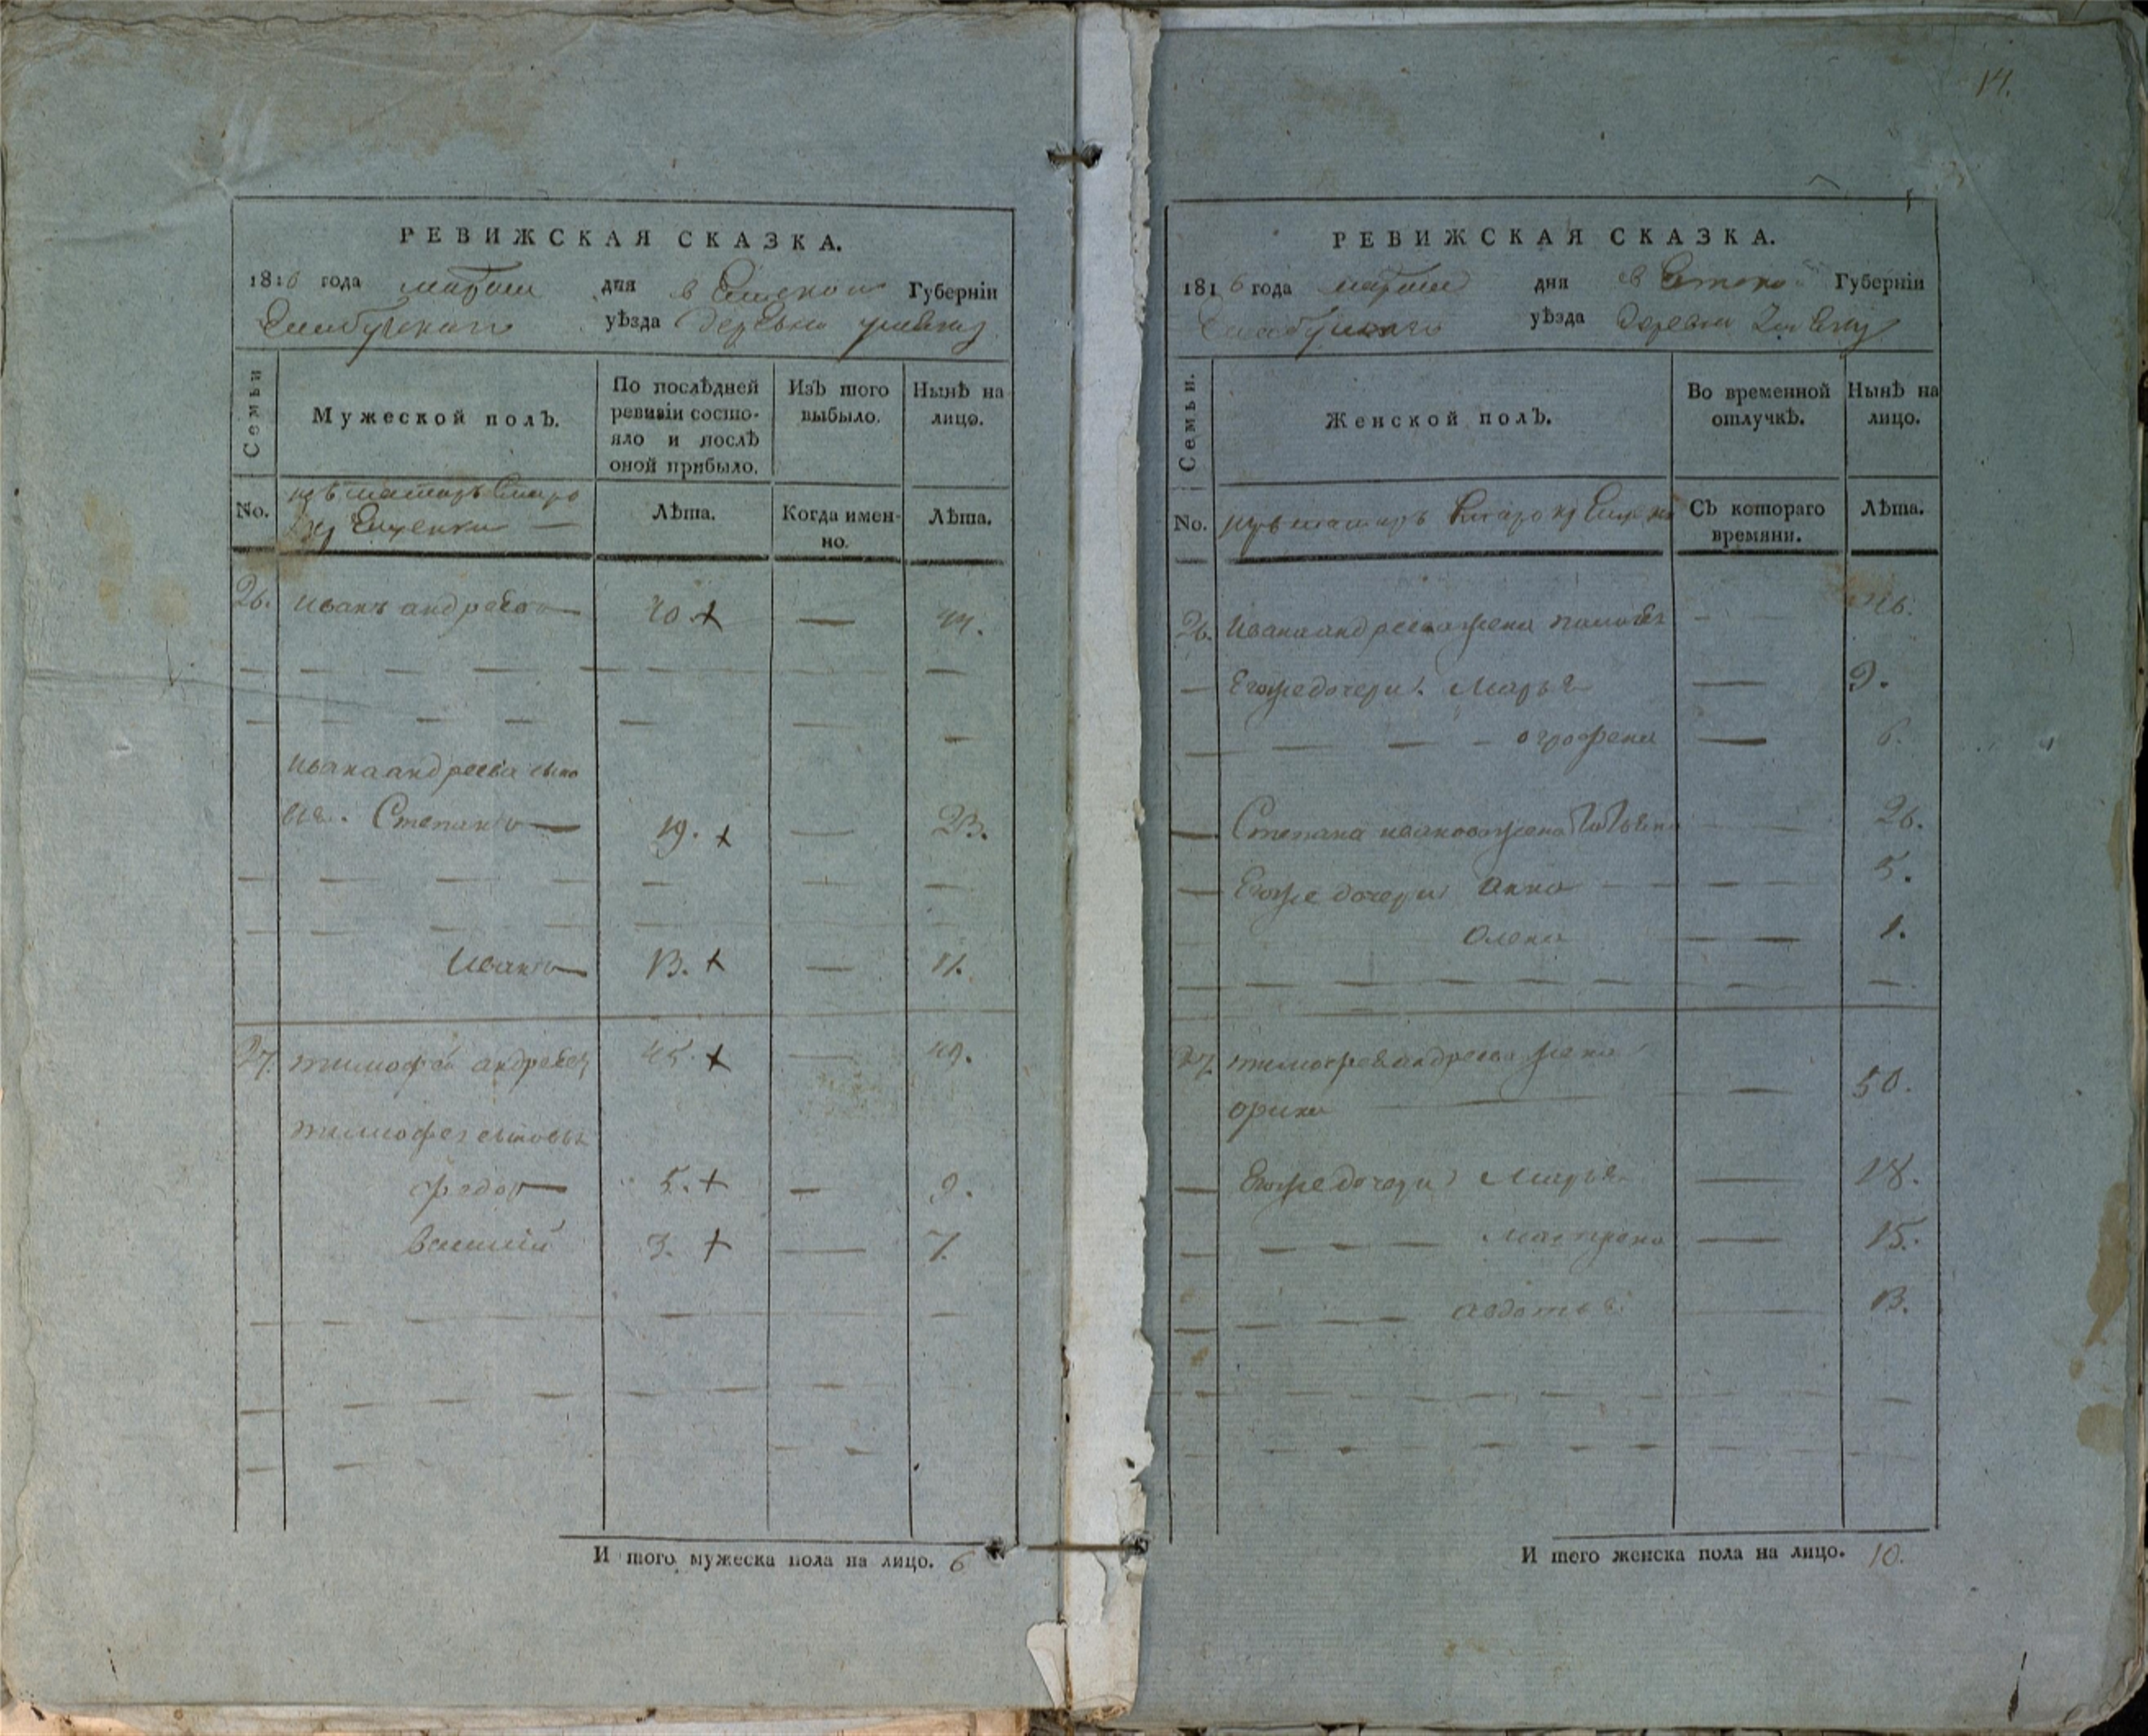 РЕВИЖСКАЯ СКАЗКА.
1816 года марта дня в Губерніи
уѣзда деревни
Семьи
Мужеской полЪ.
По послѣдней ревизіи состояло и послѣ оной прибыло.
ИзЪ того выбыло.
НынѢ на лицо.
No.
Лѣта.
Когда именно.
Лѣта.
26. Иванъ андреевъ 40. + — 44.
Ивана андреева сыно
вья. Степанъ — 19. + — 23.
Иванъ — 13. + — 17.
27. тимофей андреевъ 45. + — 49.
тимофея сыновья
федоръ — 5. + — 9.
3. + — 7.
И того мужеска пола на лицо. 6
14.
РЕВИЖСКАЯ СКАЗКА.
1816 года марта дня в Губерніи
уѣзда деревни
Семьи.
Женской полЪ.
Во временной отлучкѢ.
НынѢ на лицо.
No.
СЪ котораго времяни.
Лѣта.
26. Ивана андреева жена — 46.
— Егоже дочери. Марья — 9.
— — — — огрофена — 6.
— Степана иванова жена — 26.
— Егоже дочери анна — 5.
Олена — 1.
27. тимофея андреева жена
орина — 50.
— Егоже дочери Марья — 18.
— — — — матрена — 15.
— — — — авдотья — 13.
И того женска пола на лицо. 10.